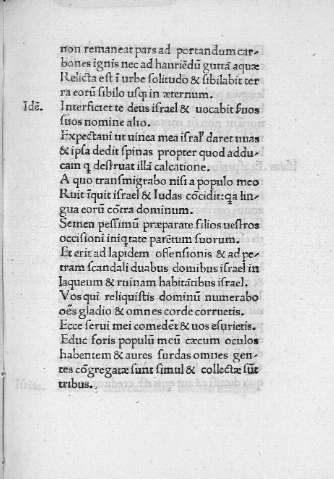 non remaneat pars ad portandum car-
bones ignis nec ad hauriēdū guttā aquæ
Relicta est ī urbe solitudo & sibilabit ter
ra eorū sibilo usq; in æternum.
Idē. Interficiet te deus israel & uocabit ſuos
suos nomine alio.
Expectaui ut uinea mea isral' daret uuas
& ipsa dedit spinas propter quod addu-
cam q destruat illā calcatione.
A quo transmigrabo nisi a populo meo
Ruit īquit israel & Iudas cōcidit: qa lin
gua eorū cōtra dominum.
Semen pessimū præparate filios uestros
occisioni iniqtate parētum suorum.
Et erit ad lapidem offensionis & ad pe-
tram scandali duabus domibus israel in
laqueum & ruinam habitātibus israel.
Vos qui reliquistis dominū numerabo
oēs gladio & omnes corde corruetis.
Ecce serui mei comedēt & uos esurietis.
Educ foris populū meū cæcum oculos
habentem & aures surdas omnes gen-
tes cōgregatæ sunt simul & collectæ sūt
tribus.